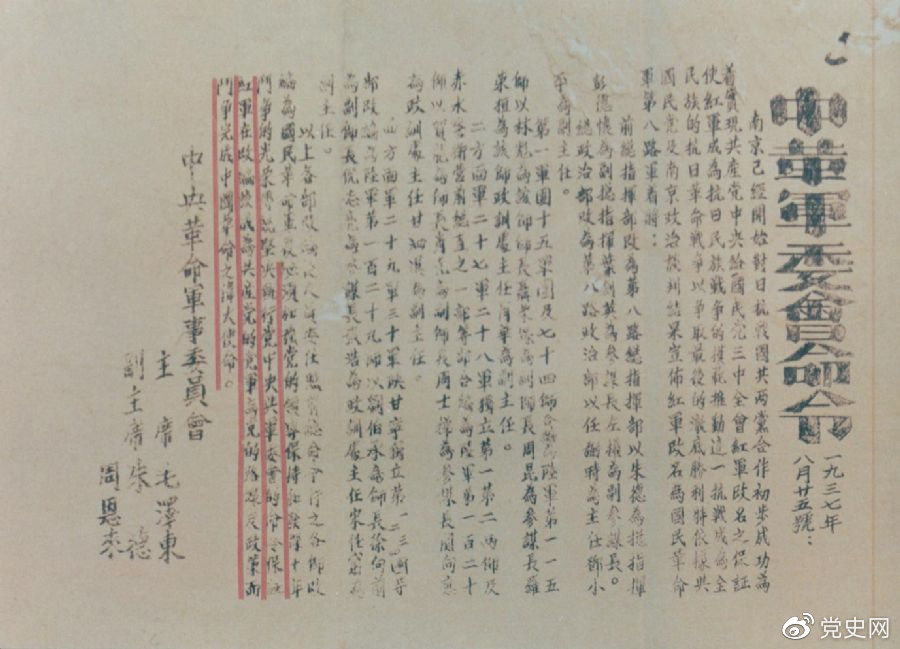 中革軍委會命令
一九三七年
八月廿五號：
南京已經開始對日抗戰國共兩黨合作初步成功為
着實現共産党中央給國民党三中全會紅軍改名之保証
使紅軍成為抗日民族戰爭的模範推動這一抗戰成為全
民族的抗日革命戰爭以爭取最後的澈底勝利特依據共
國民党及南京政治談判結果宣佈紅軍改名為國民革命
軍第八路軍着將：
前總指揮部改為第八路總指揮部以朱德為總指揮
彭德懷為副總指揮葉劍英為參謀長左權為副參謀長。
總政治部改為第八路政治部以任弼時為主任鄧小
平為副主任。
第一軍團十五軍團及七十四師合編為陸軍第一一五
師以林彪為該師師長聶榮臻為副師長周昆為參謀長羅
榮桓為該師政訓處主任蕭華為副主任。
二方面軍二十七軍二十八軍獨立第一第二兩師及
赤水警衛營前總直之一部等部合編為陸軍第一百二十
師以賀龍為師長蕭克為副師長周士槔為參謀長關向應
為政訓處主任甘泗淇為副主任。
四方面軍二十九軍三十軍陝甘寧獨立第一二三四等
部改編為陸軍第一百二十九師以劉伯承為師長徐向前
為副師長倪志亮為參謀長張浩為政訓處主任宋任窮為
副主任。
以上各部改編後人員委任照前總命令行之各師改
編為國民革命軍後必須加強党的領導保持和發揮十年
鬥爭的光榮傳統堅決執行党中央與軍委會的命令保証
紅軍在改編後成為共産党的党軍為党的路線及政策而
鬥爭完成中國革命之偉大使命。
中央革命軍事委員會
主席毛澤東
副主席朱德
周恩來
党史网